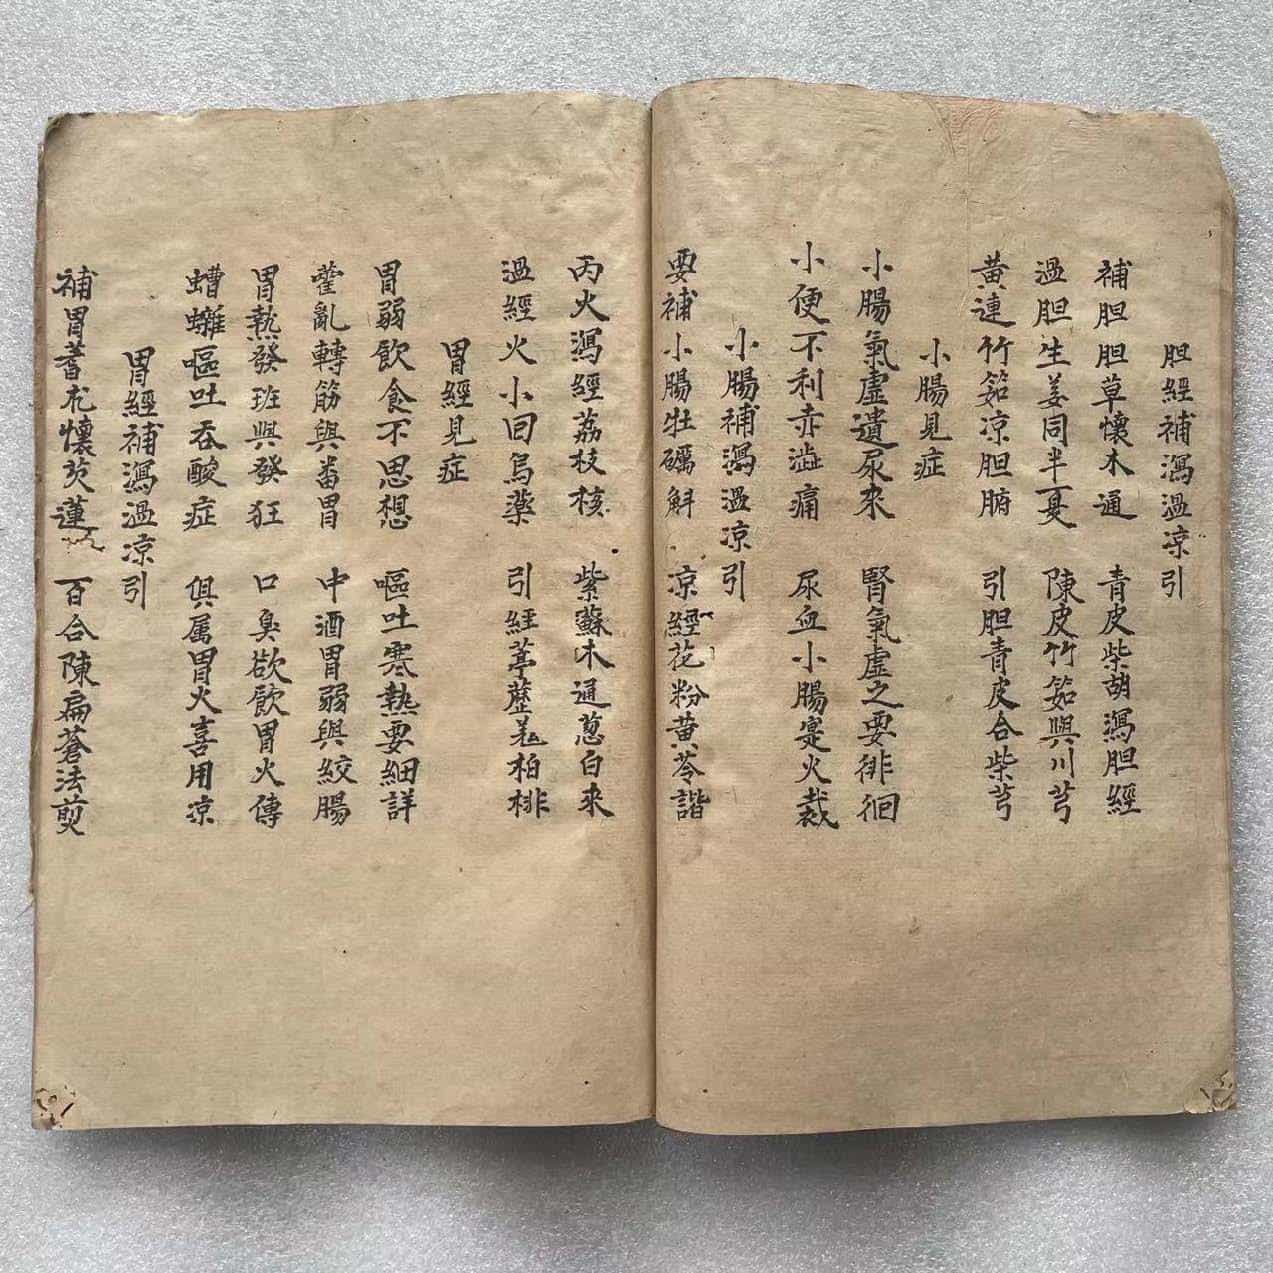 胆經補瀉溫凉引
補胆胆草懷木通 青皮柴胡瀉胆經
溫胆生姜同半夏 陳皮竹筎與川芎
黄連竹筎凉胆腑 引胆青皮合柴芎
小腸見症
小腸氣虛遺尿來 腎氣虛之要徘徊
小便不利赤澁痛 尿血小腸寔火裁
小腸補瀉溫凉引
要補小腸牡礪斛 凉經花粉黄芩諧
丙火瀉經荔枝核 紫蘇木通葱白來
溫經火小回烏藥 引經葶藶羗柏棑
胃經見症
胃弱飲食不思想 嘔吐寒熱要細詳
藿亂轉筋與畨胃 中酒胃弱與絞腸
胃熱發班與發狂 口臭欲飲胃火傳
螬𧕴嘔吐吞酸症 俱属胃火喜用凉
胃經補瀉溫凉引
補胃蓍朮懷芡蓮 百合陳扁蒼法煎